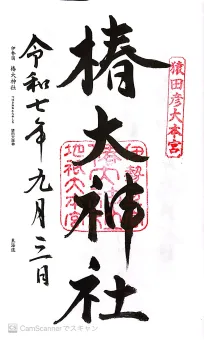 猿田彦大本宮
椿大神社
伊勢
地祇大本宮
令和七年九月三日
椿大神社
CamScannerでスキャン